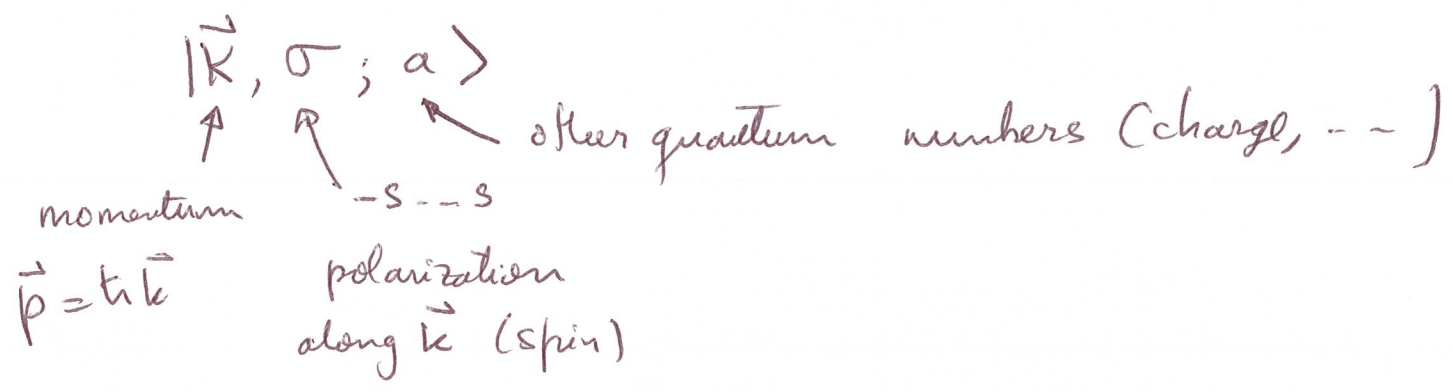 |k⃗, σ ; a >
other quantum numbers (charge, - - )
momentum
-s - - - s
p⃗ = ħk⃗
polarization
along k⃗ (spin)